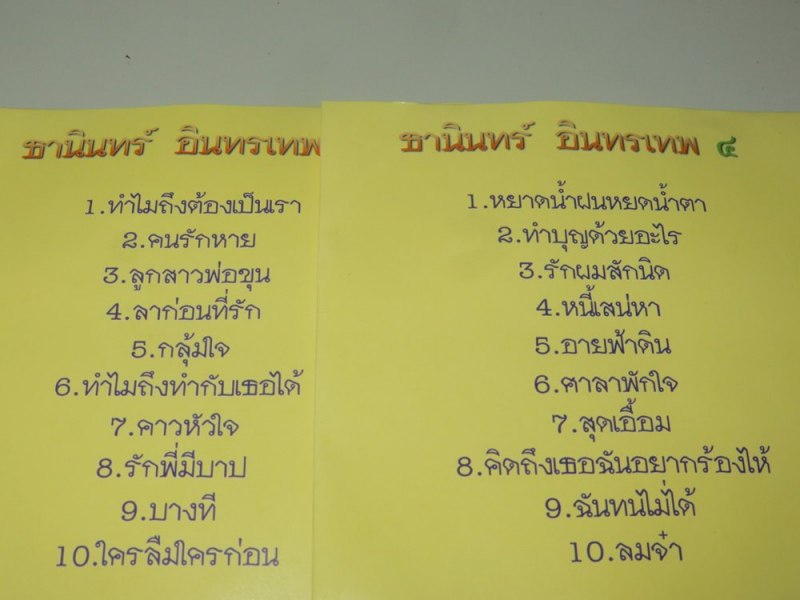 ธานินทร์ อินทรเทพ
1.ทำไมถึงต้องเป็นเรา
2.คนรักหาย
3.ลูกสาวพ่อขุน
4.ลาก่อนที่รัก
5.กลุ้มใจ
6.ทำไมถึงทำกับเธอได้
7.คาวหัวใจ
8.รักพี่มีบาป
9.บางที
10.ใครลืมใครก่อน
ธานินทร์ อินทรเทพ ๔
1.หยาดน้ำฝนหยดน้ำตา
2.ทำบุญด้วยอะไร
3.รักผมสักนิด
4.หนี้เสน่หา
5.อายฟ้าดิน
6.ศาลาพักใจ
7.สุดเอื้อม
8.คิดถึงเธอฉันอยากร้องไห้
9.ฉันทนไม่ได้
10.ลมจ๋า